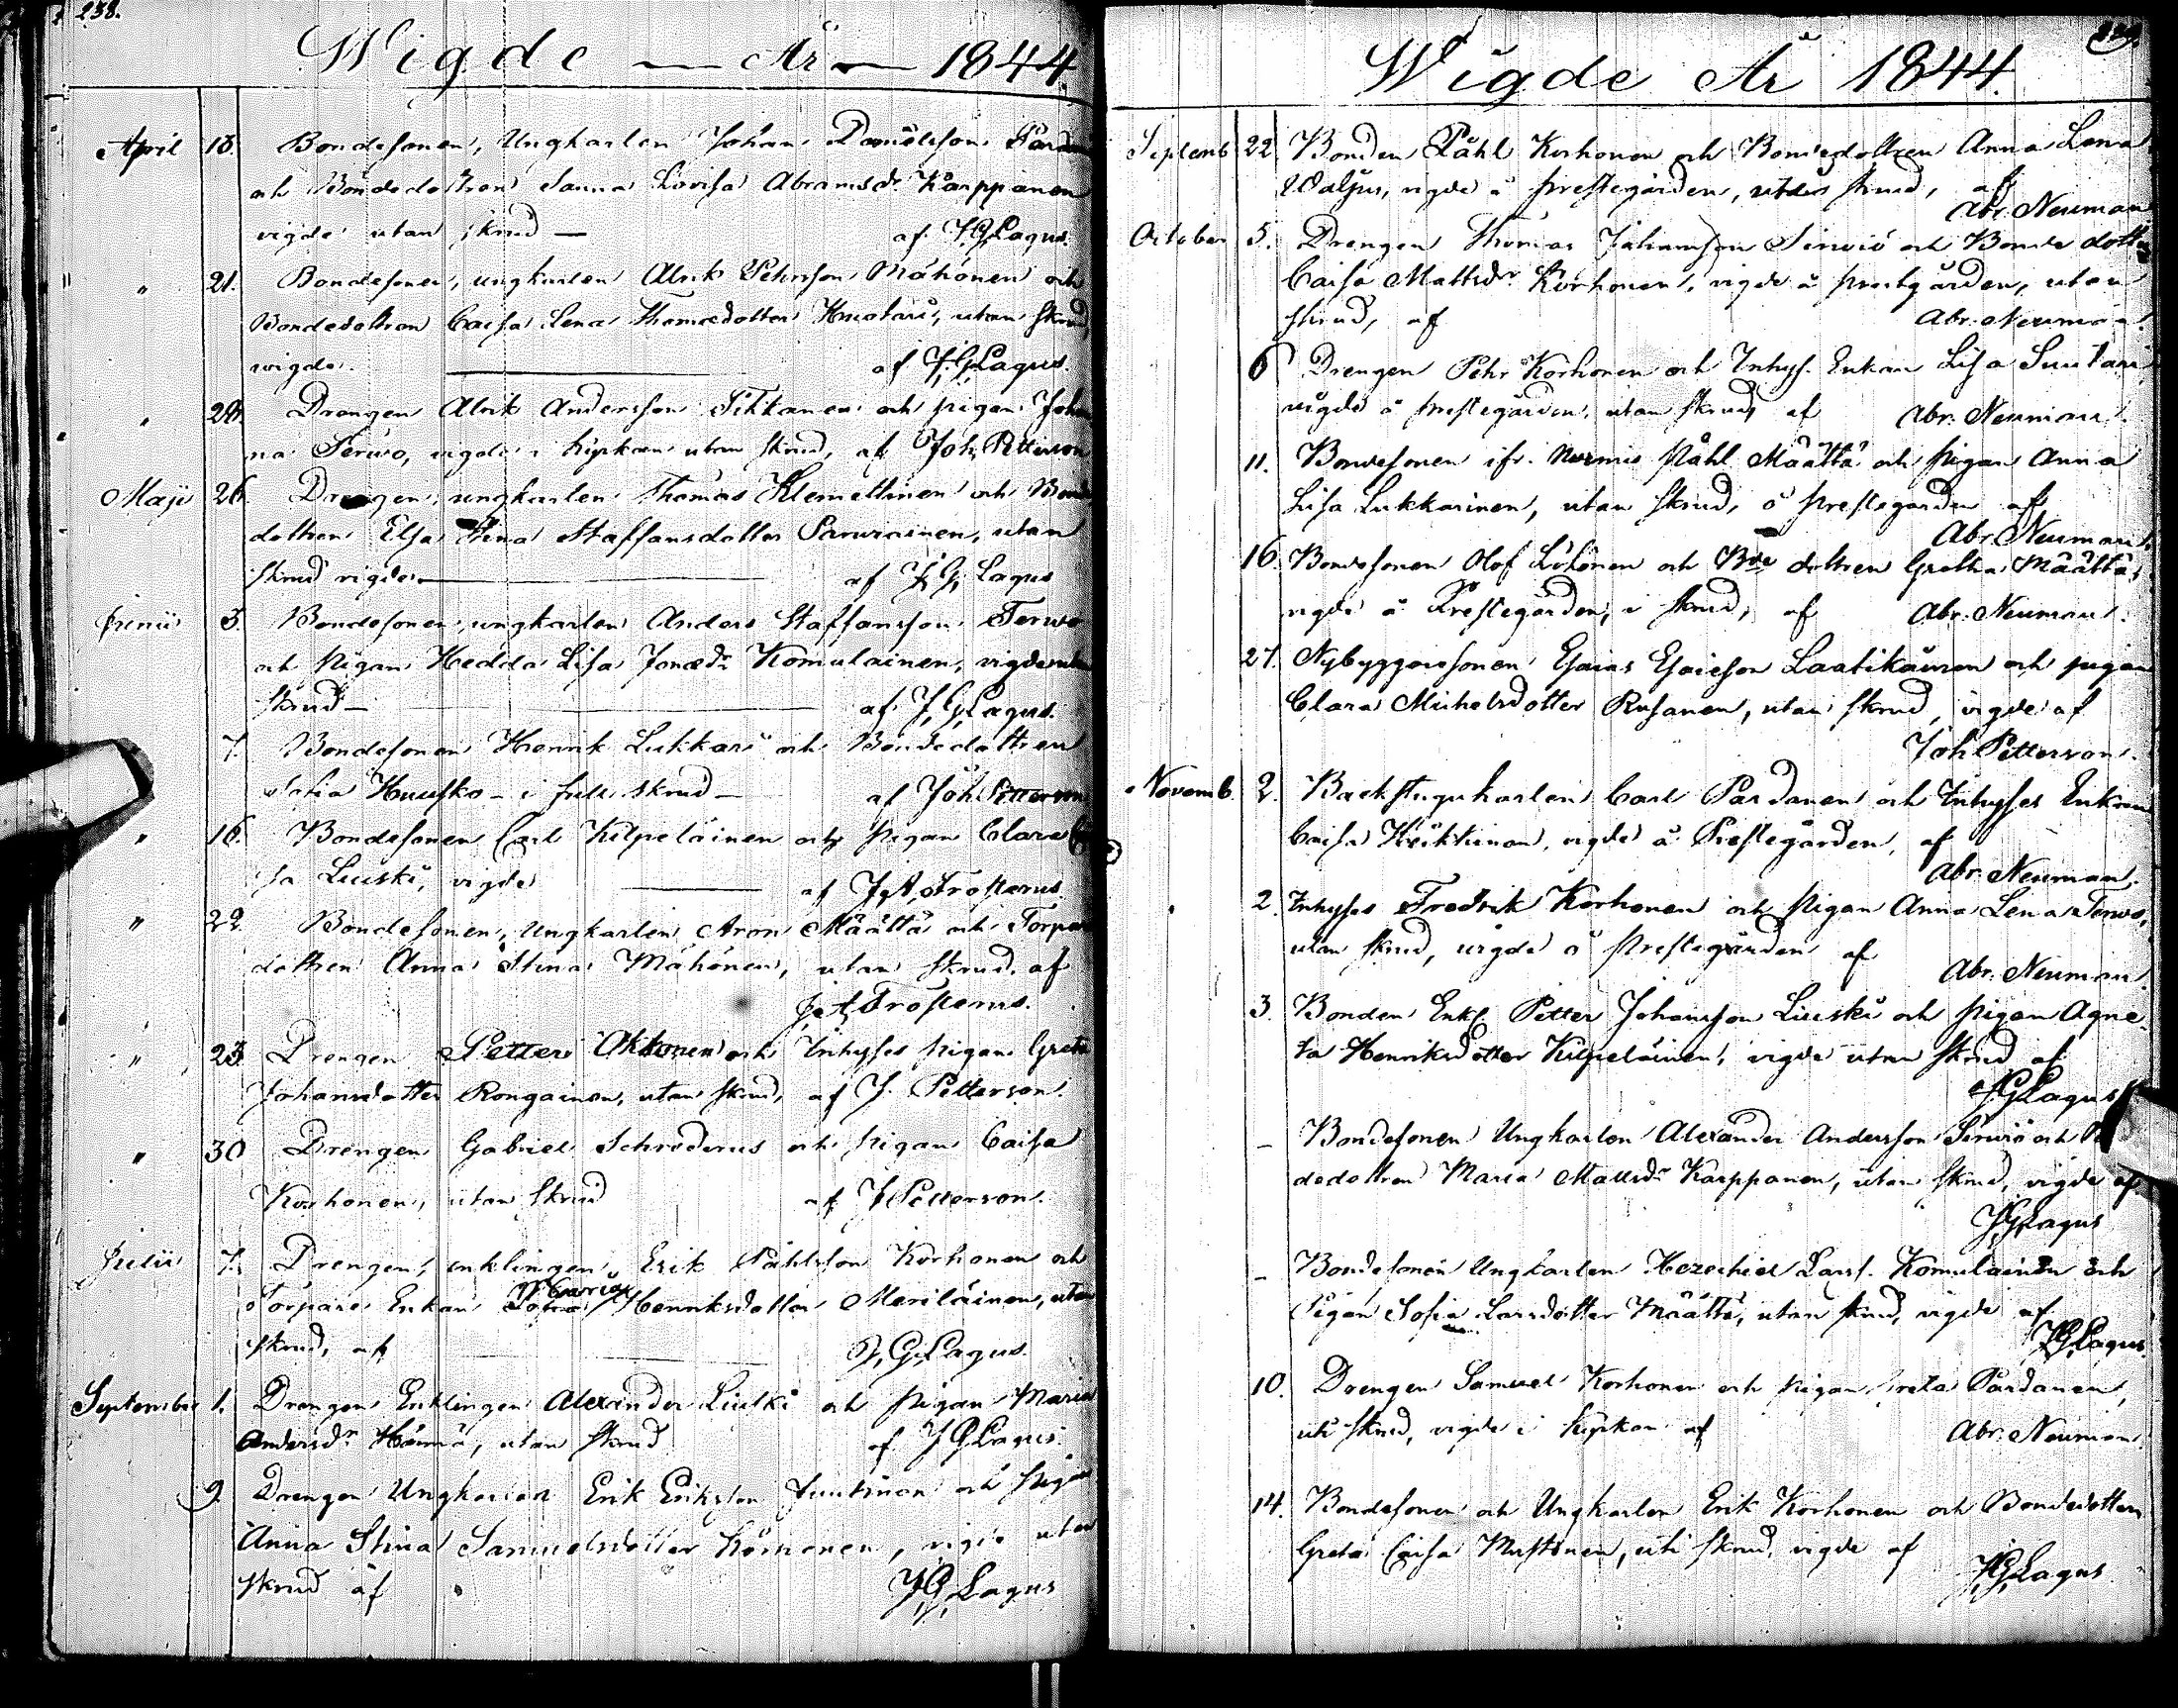 238.
Wigde — År — 1844.
April 18. Bondesonen, Ungkarlen Johan Danielsson
och Bondedottren Sanna Lovisa Abramsdr Karppanen
vigde utan skrud — af J. G. Lagus.
" 21. Bondesonen, ungkarlen Alrik Pehrsson Mähönen och
Bondedottren Caisa Lena Thomædotter Huotari, utan skrud,
vigde. af J. G. Lagus.
" 28. Drengen Alrik Andersson Tikkanen och pigan Johan
na Servo, vigde i kyrkan utan skrud, af Joh. Petterson
Maji 26. Drengen, ungkarlen Thomas Klemettinen och Bonde
dottren Elsa Stina Staffansdotter Parviainen, utan
skrud vigde af J. G. Lagus
Junii 3. Bondesonen, ungkarlen Anders Staffansson Tervo
och Pigan Hedda Lisa Jonædr Komulainen, vigde utan
skrud — af J. G. Lagus.
7. Bondesonen Henrik Lukkari och Bondedottren
Sofia Huusko - i full skrud - af Joh. Petterson
" 16. Bondesonen Carl Kilpeläinen och pigan Clara
sa Liuski, vigde af J. A. Frosterus
" 22. Bondesonen, Ungkarlen Aron Määttä och Torpare
dottren Anna Stina Mähönen, utan skrud, af
J. A. Frosterus.
" 23 Drengen Petter Akkonen och Inhyses pigan Greta
Johansdotter Rongainen, utan skrud, af J. Petterson.
" 30 Drengen Gabriel Schroderus och pigan Caisa
Korhonen, utan skrud af J Petterson.
Julii 7. Drengen, enklingen, Erik Påhlsson Korhonen och
Torpare Enkan Henriksdotter Meriläinen, utan
skrud, af J. G. Lagus.
September 1. Drengen Enklingen Alexander Liuski och pigan Maria
Andersdr Härmä, utan skrud af J G Lagus.
9. Drengen Ungkarlen Erik Eriksson Juntunen och pigan
Anna Stina Samuelsdotter Komonen, vigde utan
skrud af J. G. Lagus
Wigde År 1844.
Septemb 22 Bonden Påhl Korhonen och Bondedottren Anna Lena
Waljus, vigde å prestegården, utan skrud, af
Abr. Neuman
October 5. Drengen Thomas Johansson Sirviö och Bonde dotter
Caisa Mattsdr Korhonen, vigde å prestgården, utan
skrud, af Abr. Neuman.
6 Drengen Pehr Korhonen och Inhys. Enkan Lisa Suutari
vigde å prestegården, utan skrud, af Abr. Neuman.
11. Bondesonen ifr. Nurmis Påhl Määttä och pigan Anna
Lisa Lukkarinen, utan skrud, å prestegården af
Abr. Neuman.
16. Bondesonen Olof Löhönen och Bde dottren Gretha Määttä,
vigde å Prestegården, i skrud, af Abr. Neuman.
27. Nybyggaresonen Esaias Esaiesson Laatikainen och pigan
Clara Michelsdotter Rusanen, utan skrud, vigde af
Joh Petterson.
Novemb. 2. Backstugukarlen Carl Pardanen och Inhyses Enkan
Caisa Heikkinen, vigde å Prestegården, af
Abr. Neuman.
2. Inhyses Fredrik Korhonen och Pigan Anna Lena Tervo,
utan skrud, vigde å prestegården af
Abr. Neuman.
3. Bonden Enkl. Petter Johansson Liuski och pigan Agne-
ta Henriksdotter Kilpeläinen, vigde utan skrud af
J G Lagus
– Bondesonen Ungkarlen Alexander Andersson Sirviö och
dedottren Maria Mattsdr Karppanen, utan skrud, vigde af
J. G. Lagus
– Bondesonen Ungkarlen Hezechiel Larss. Komulainen och
Pigan Sofia Larsdotter Määttä, utan skrud, vigde af
J. G. Lagus.
10. Drengen Samuel Korhonen och pigan Greta Pardanen,
uti skrud, vigde i kyrkan af Abr. Neuman.
14. Bondesonen och Ungkarlen Erik Korhonen och Bondedottren
Greta Caisa Mustonen, uti skrud, vigde af
J. G. Lagus